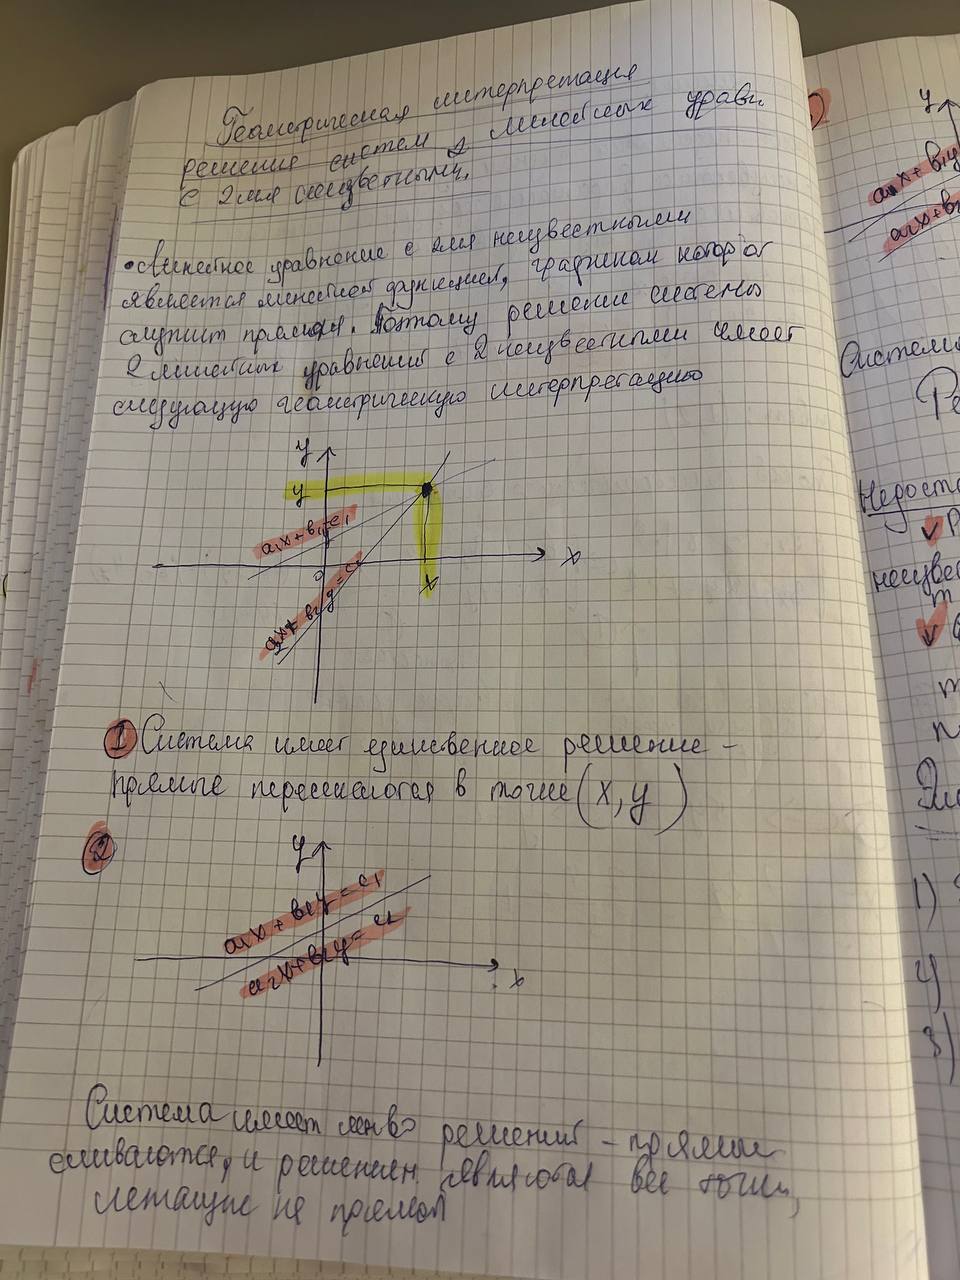 Геометрическая интерпретация
решения систем 2 линейных уравн.
с 2мя неизвестными.
• Линейное уравнение с 2мя неизвестными
является линейной функцией, графиком которой
служит прямая. Поэтому решение системы
2 линейных уравнений с 2 неизвестными имеет
следующую геометрическую интерпретацию
y
y
a₁x + b₁ = c₁
x
0
x
a₂x + b₂y = c₂
1 Система имеет единственное решение -
прямые пересекаются в точке (x, y)
2
y
a₁x + b₁y = c₁
a₂x + b₂y = c₂
x
Система имеет мн-во решений - прямые
сливаются, и решением являются все точки,
лежащие на прямой
y
a₁x + b₁y
a₂x + b₂
Система
Ре
Недоста
неизвес
m
1)
2)
3)